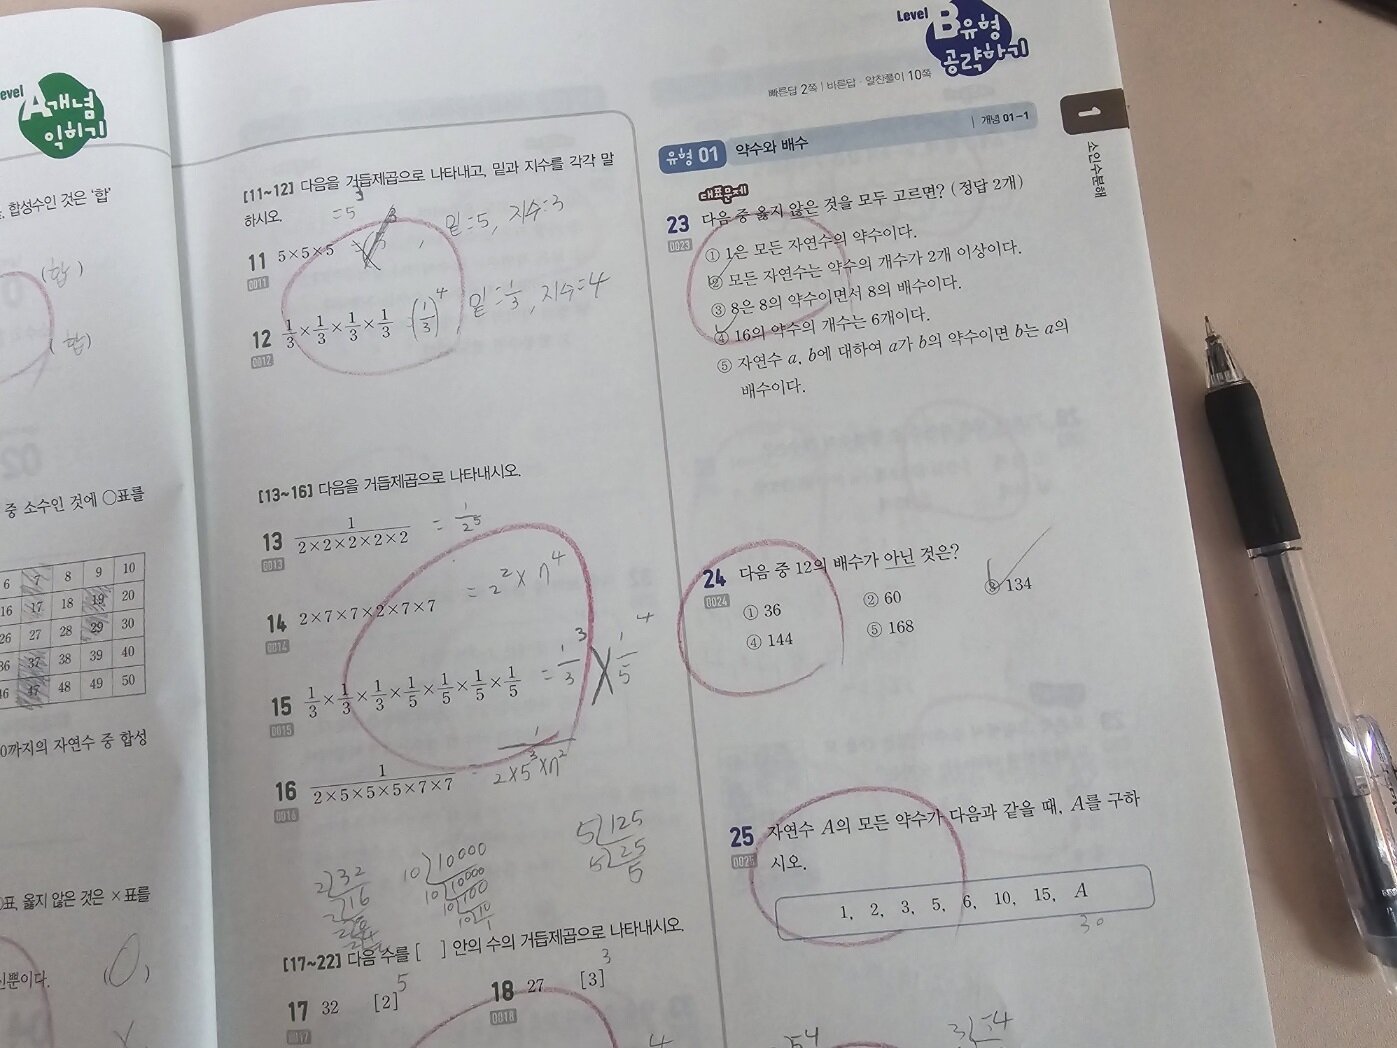 Level
A개념
익히기
합성수인 것은 '합'
(합)
(합)
중 소수인 것에 ○표를
6 7 8 9 10
16 17 18 19 20
26 27 28 29 30
36 37 38 39 40
46 47 48 49 50
0까지의 자연수 중 합성
표, 옳지 않은 것은 ×표를
신뿐이다. (O)
[11~12] 다음을 거듭제곱으로 나타내고, 밑과 지수를 각각 말
하시오.
11 5×5×5 =5³, 밑=5, 지수=3
0011
12 1/3×1/3×1/3×1/3 =(1/3)⁴ 밑=1/3, 지수=4
0012
[13~16] 다음을 거듭제곱으로 나타내시오.
13 1/(2×2×2×2×2) = 1/2⁵
0013
14 2×7×7×2×7×7 = 2²×7⁴
0014
15 1/3×1/3×1/3×1/5×1/5×1/5×1/5 = 1/3³×1/5⁴
0015
16 1/(2×5×5×5×7×7) = 1/(2×5³×7²)
0016
2)32
2)16
10)10000
10)1000
10)100
10)10
1
5)125
5)25
5
[17~22] 다음 수를 [ ] 안의 수의 거듭제곱으로 나타내시오.
17 32 [2]⁵
0017
18 27 [3]³
0018
Level
B유형
공략하기
빠른답 2쪽 | 바른답·알찬풀이 10쪽
1
소인수분해
유형 01 약수와 배수 | 개념 01-1
대표문제
23 다음 중 옳지 않은 것을 모두 고르면? (정답 2개)
0023
① 1은 모든 자연수의 약수이다.
② 모든 자연수는 약수의 개수가 2개 이상이다.
③ 8은 8의 약수이면서 8의 배수이다.
④ 16의 약수의 개수는 6개이다.
⑤ 자연수 a, b에 대하여 a가 b의 약수이면 b는 a의
배수이다.
24 다음 중 12의 배수가 아닌 것은?
0024
① 36 ② 60 ③ 134
④ 144 ⑤ 168
25 자연수 A의 모든 약수가 다음과 같을 때, A를 구하
0025
시오.
1, 2, 3, 5, 6, 10, 15, A
30